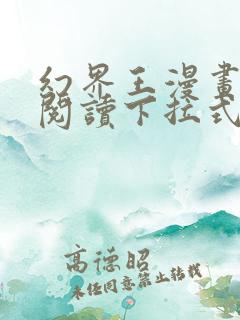 幻界王漫畫
閱讀下拉式
高德昭
未經同意禁止轉載